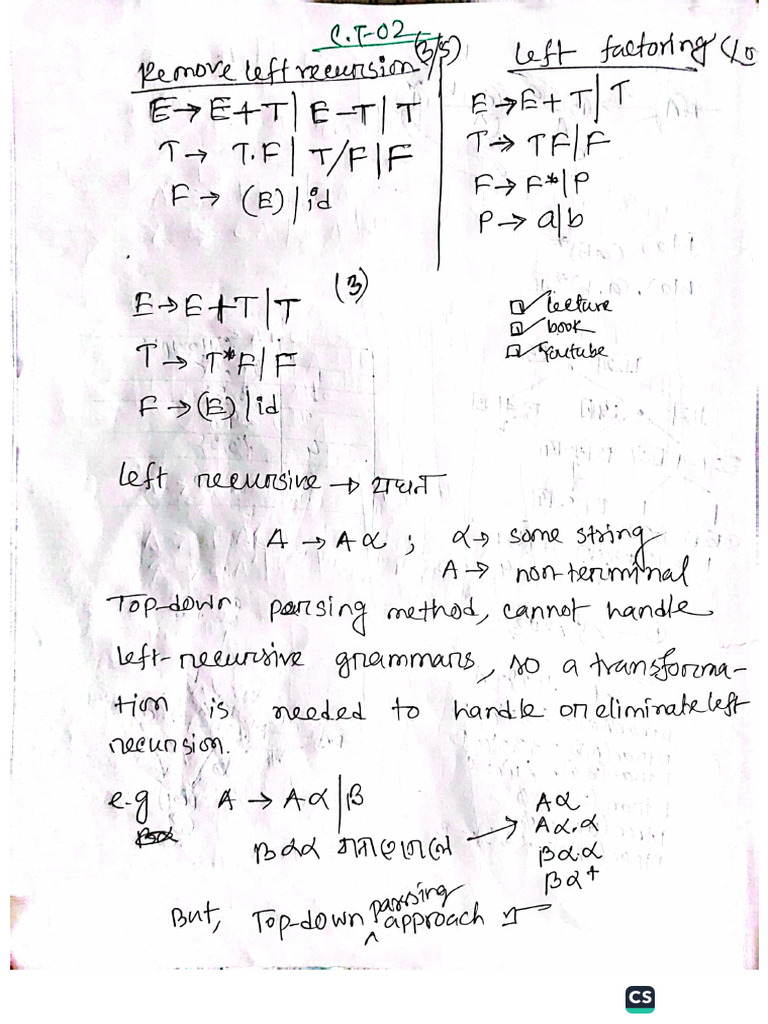 C.T-02
Remove left recursion (3/5)
E → E + T | E - T | T
T → T.F | T/F | F
F → (E) | id
Left factoring
E → E + T | T
T → TF | F
F → F* | P
P → a | b
(3)
E → E + T | T
T → T * F | F
F → (E) | id
☑ Lecture
☑ book
☑ Youtube
Left recursive →
A → A α ; α → some string
A → non-terminal
Top-down parsing method, cannot handle
left-recursive grammars, so a transforma-
tion is needed to handle or eliminate left
recursion.
e.g A → Aα | β
βαα →
Aα
Aα.α
βα.α
βα+
But, Top-down parsing approach
CS